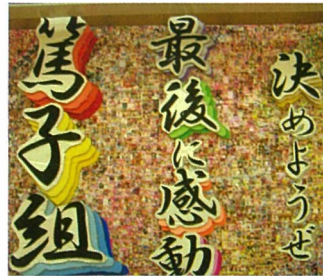 決めようぜ
最後に感動
篤子組